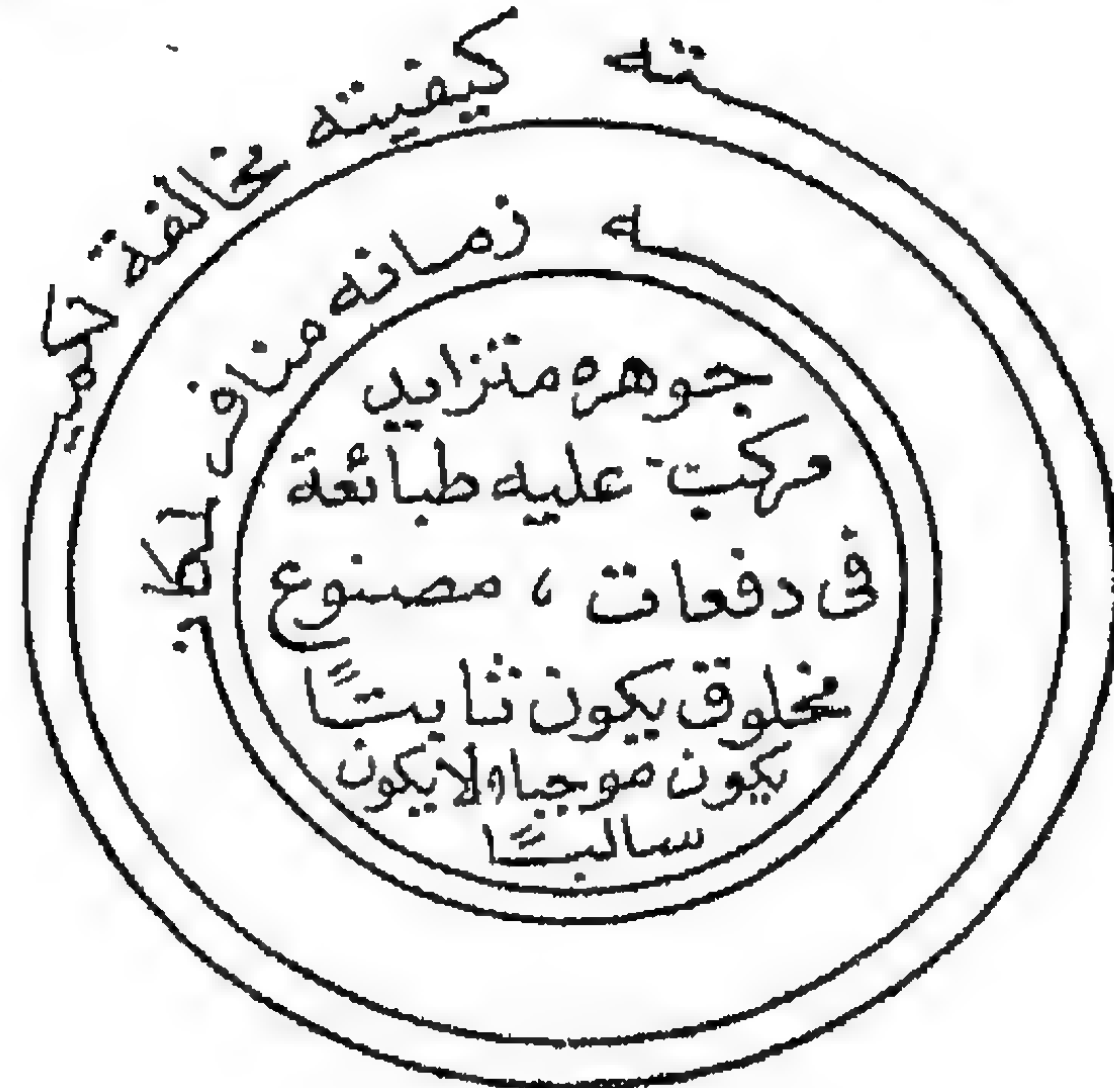 كيفيته مخالفة لكميته
زمانه منافر
جوهره متزايد
مركب عليه طبائعة
فى دفعات ، مصنوع
مخلوق يكون ثابتًا
يكون موجبا ولا يكون
سالبًا